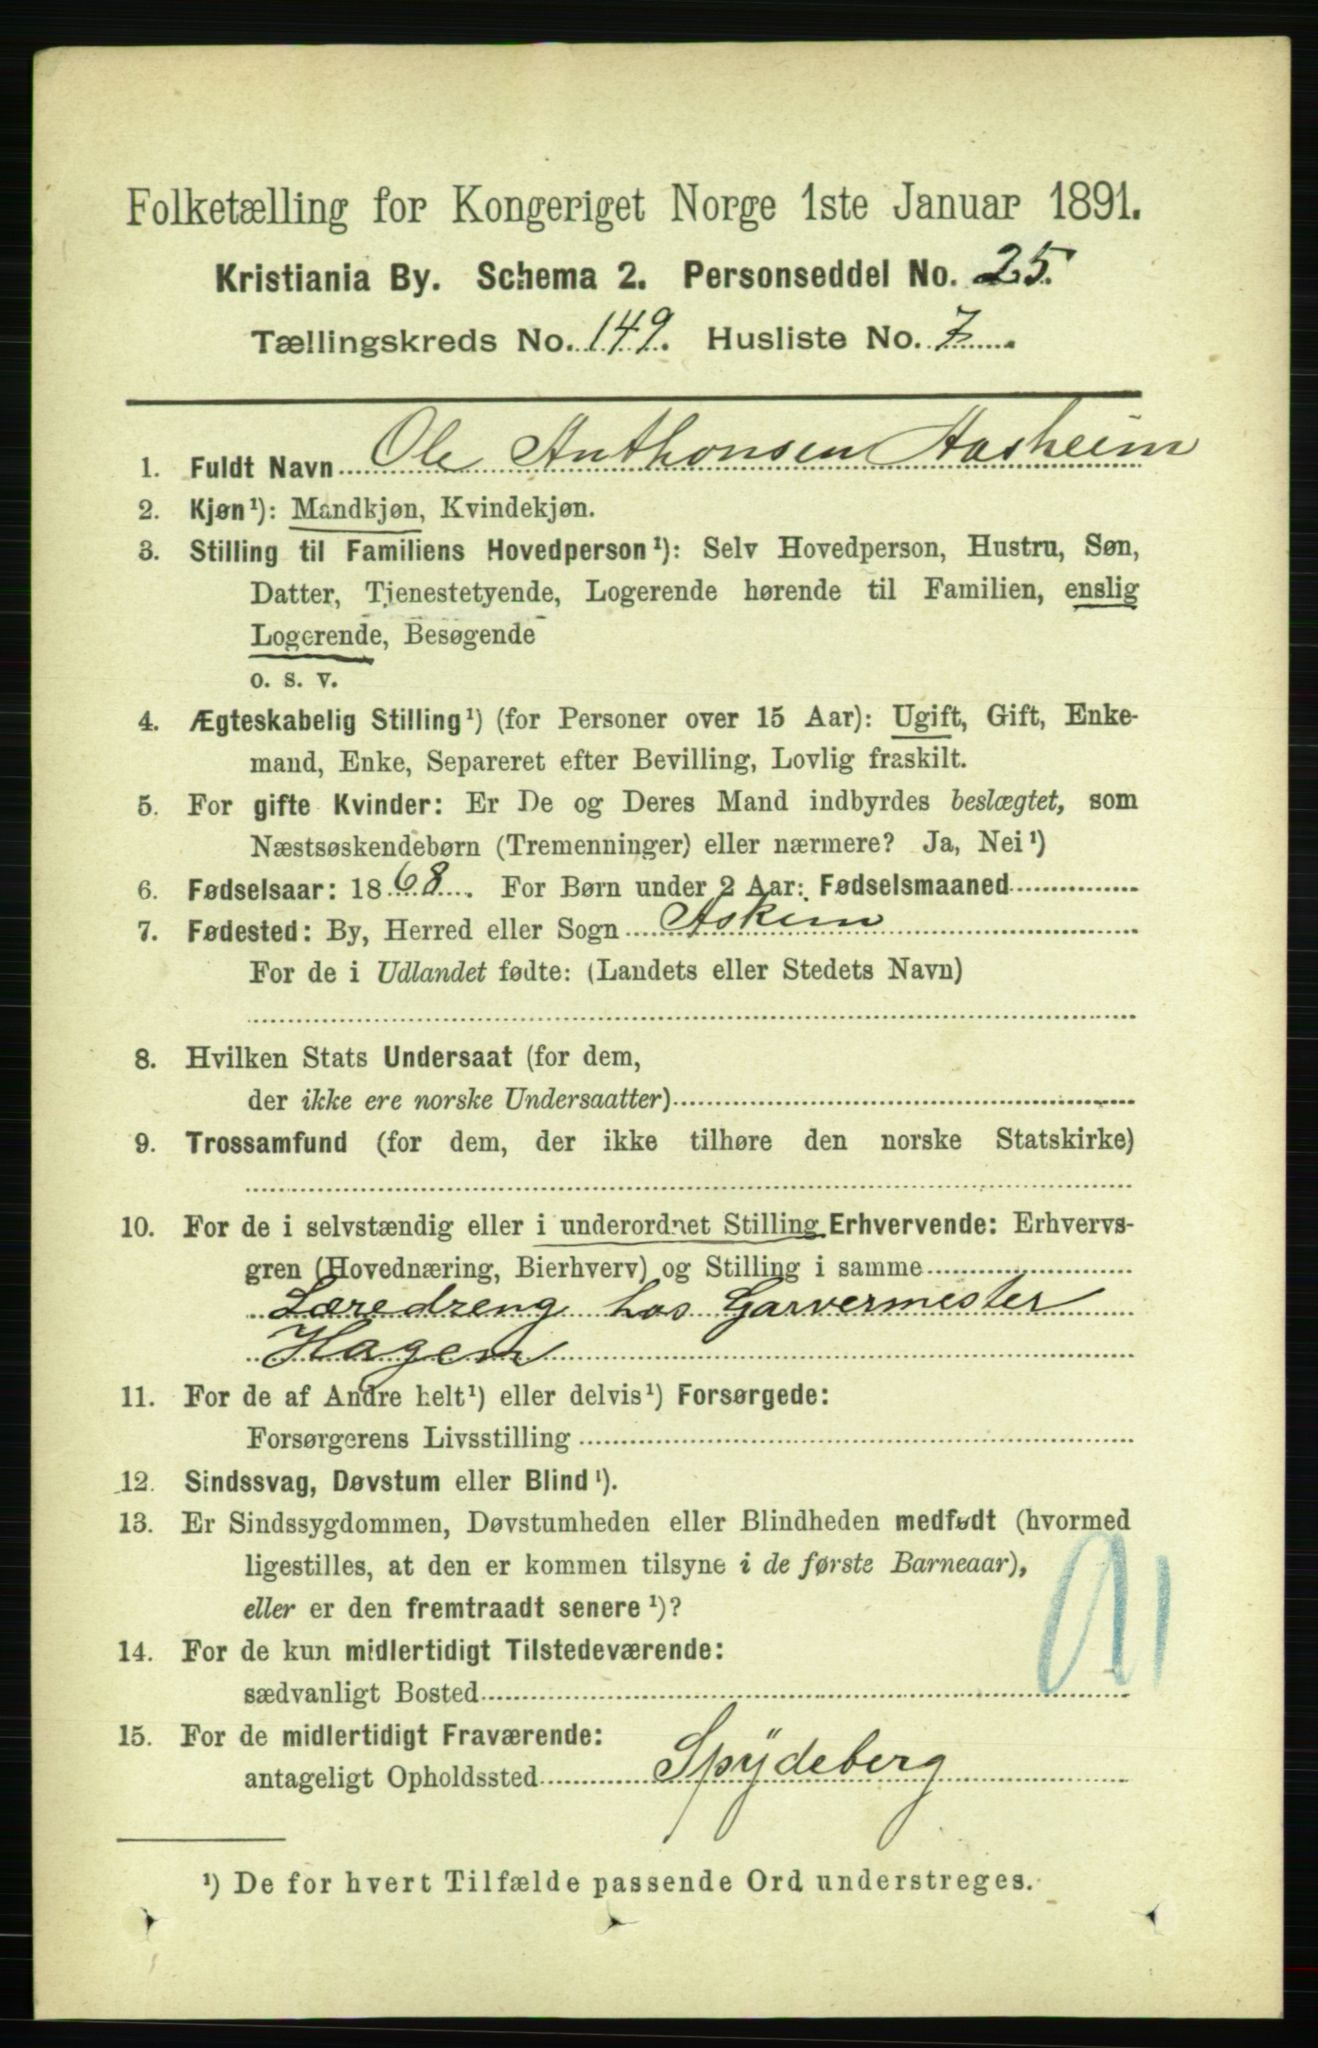 Folketælling for Kongeriget Norge 1ste Januar 1891.
Kristiania By. Schema 2. Personseddel No. 25.
Tællingskreds No. 149. Husliste No. 7
1. Fuldt Navn Ole Anthonsen Aasheim
2. Kjøn¹): Mandkjøn, Kvindekjøn.
3. Stilling til Familiens Hovedperson¹): Selv Hovedperson, Hustru, Søn,
Datter, Tjenestetyende, Logerende hørende til Familien, enslig
Logerende, Besøgende
o. s. v.
4. Ægteskabelig Stilling¹) (for Personer over 15 Aar): Ugift, Gift, Enke-
mand, Enke, Separeret efter Bevilling, Lovlig fraskilt.
5. For gifte Kvinder: Er De og Deres Mand indbyrdes beslægtet, som
Næstsøskendebørn (Tremenninger) eller nærmere? Ja, Nei¹)
6. Fødselsaar: 1868. For Børn under 2 Aar: Fødselsmaaned
7. Fødested: By, Herred eller Sogn Askim
For de i Udlandet fødte: (Landets eller Stedets Navn)
8. Hvilken Stats Undersaat (for dem,
der ikke ere norske Undersaatter)
9. Trossamfund (for dem, der ikke tilhøre den norske Statskirke)
10. For de i selvstændig eller i underordnet Stilling Erhvervende: Erhvervs-
gren (Hovednæring, Bierhverv) og Stilling i samme
Læredreng hos Garvermester
Hagen
11. For de af Andre helt¹) eller delvis¹) Forsørgede:
Forsørgerens Livsstilling
12. Sindssvag, Døvstum eller Blind¹).
13. Er Sindssygdommen, Døvstumheden eller Blindheden medfødt (hvormed
ligestilles, at den er kommen tilsyne i de første Barneaar),
eller er den fremtraadt senere¹)?
14. For de kun midlertidigt Tilstedeværende:
sædvanligt Bosted
15. For de midlertidigt Fraværende:
antageligt Opholdssted Spydeberg
¹) De for hvert Tilfælde passende Ord understreges.